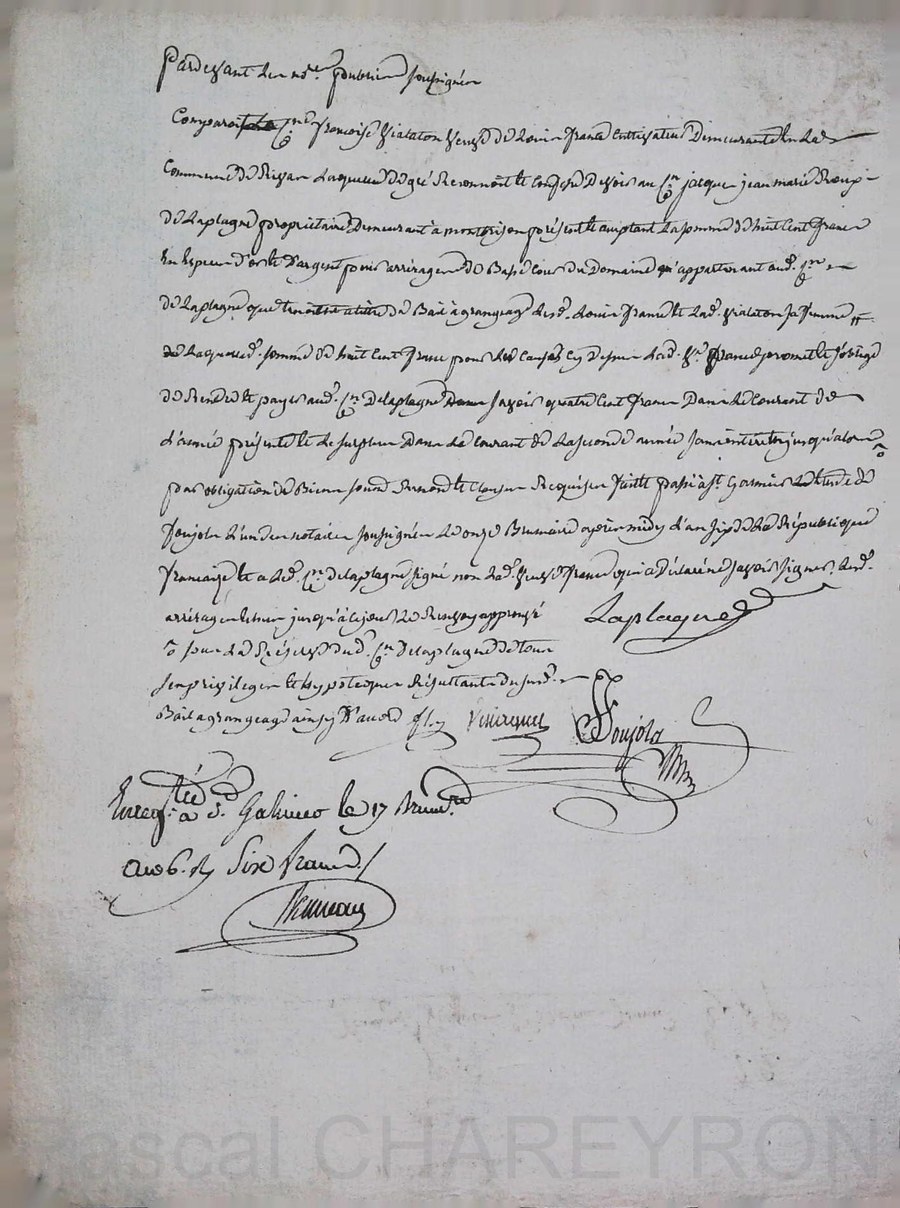 Pardevant les n.res publics soussignés
Comparoit C.ne françoise Vialaton veuve de Louis franc cultivateur Demeurante en la
Commune de laquelle de gré Reconnoit et Confesse Devoir au C.en jacque jean marie
de Laplagne propriétaire Demeurant à montbrison présent et acceptant La somme de huit Cent francs
En Espece d'or et D'argent pour arrérages de du Domaine appartenant aud. C.en
de Laplagne que tenoient à titre de Bail à grangeage led. Louis franc et lad. Vialaton sa femme
Laquelle d. somme de huit Cent francs pour les Causes Cy Dessus Lad. V.e franc promet et s'oblige
de Rendre et payer aud. C.en Delaplagne savoir quatre Cent francs Dans le Courant de
L'année présente et le surplus Dans le courant de La seconde année sans interet jusqu'alors
par obligation de Biens soumis Renonce et Clauses Requises fait et passé à S.t Galmier Etude de
Poujols L'un des notaires soussignés Le onze Brumaire après midy L'an six de la République
française et a led. C.en Delaplagne signé non lad. veuve franc qui a Déclaré ne savoir signer, Lesd.
arrérages jusqu'à ce jour Le Renvoy approuvé Laplagne
sous la Réserve dud. C.en Delaplagne de tous
ses privileges et hypoteques Résultants dusud.
Bail à grangeage ainsy D'acord Poujols
Enreg.tré à S.t Galmier le 17 Brum.re
an 6. Six francs